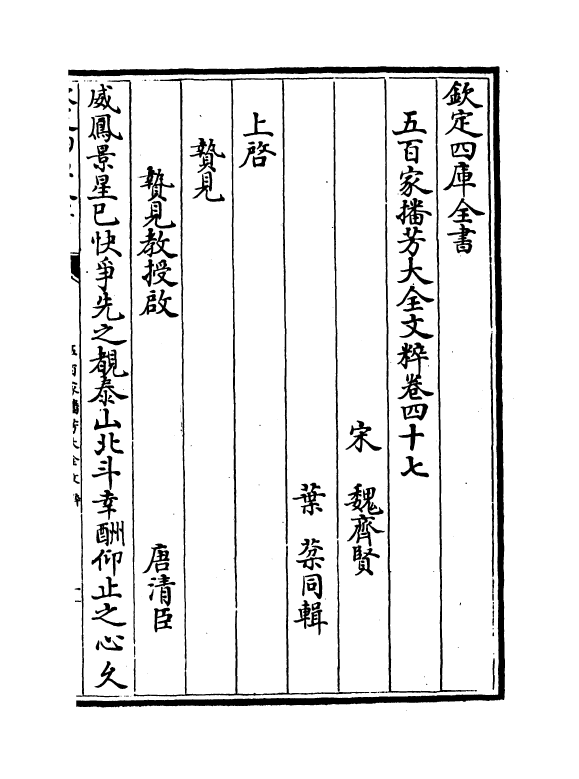 欽定四庫全書
五百家播芳大全文粹卷四十七
宋　魏齊賢
葉　棻同輯
上啓
贄見
贄見教授啟　唐清臣
威鳳景星已快爭先之覩泰山北斗幸酬仰止之心久